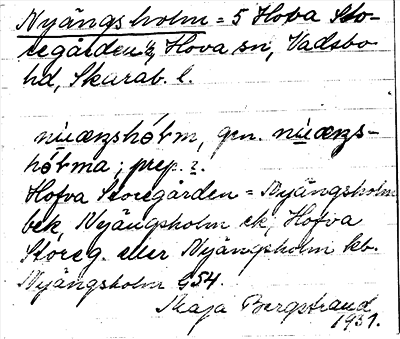 Nyängsholm = 5 Hova Sto-
regården 2, Hova sn, Vadsbo
hd, Skarab. l.
niuæŋshórm, gen. niuæŋs-
hórma; prep. i.
Hofva Storegården = Nyängsholm
bek, Nyängsholm ek, Hofva
Storeg. eller Nyängsholm kb.
Nyängsholm G54.
Maja Bergstrand
1931.